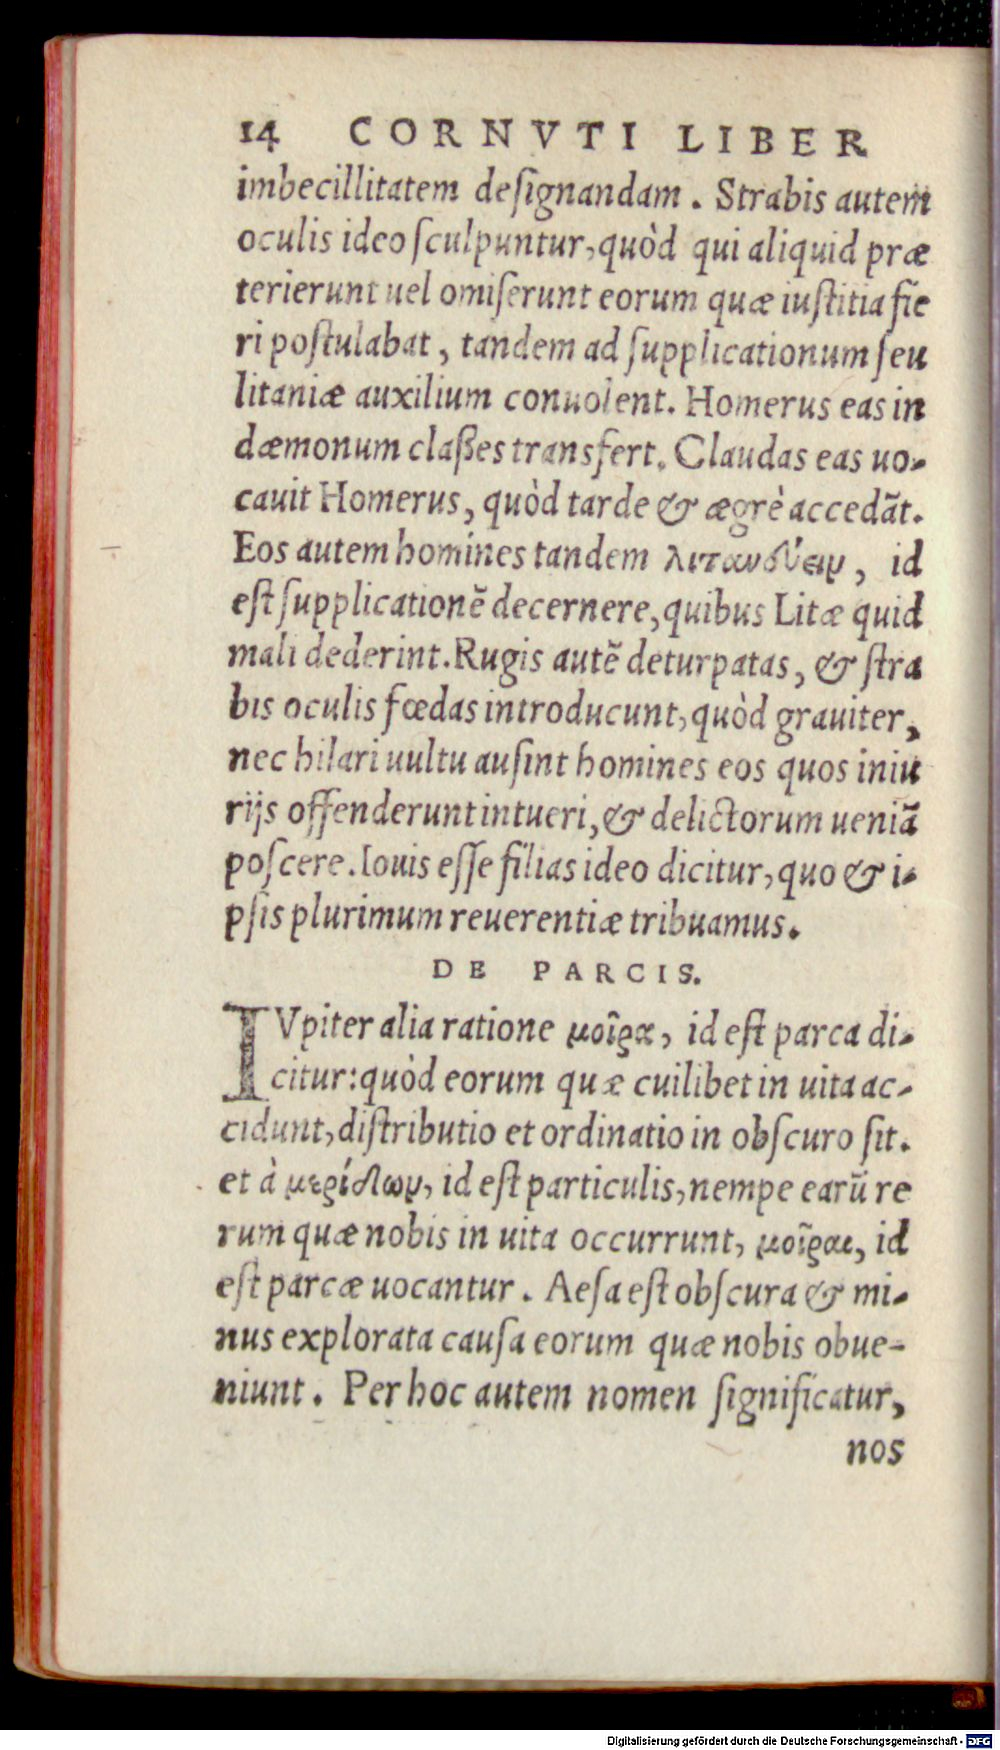 14 CORNVTI LIBER
imbecillitatem deſignandam. Strabis autem
oculis ideo ſculpuntur, quòd qui aliquid præ
terierunt uel omiſerunt eorum quæ iuſtitia fie
ri poſtulabat, tandem ad ſupplicationum ſeu
litaniæ auxilium conuolent. Homerus eas in
dæmonum claßes transfert. Claudas eas uo-
cauit Homerus, quòd tarde & ægrè accedãt.
Eos autem homines tandem λιτανδύειν, id
eſt ſupplicationẽ decernere, quibus Litæ quid
mali dederint. Rugis autẽ deturpatas, & ſtra
bis oculis fœdas introducunt, quòd grauiter,
nec hilari uultu auſint homines eos quos iniu
rijs offenderunt intueri, & delictorum ueniã
poſcere. Iouis eſſe filias ideo dicitur, quo & i-
pſis plurimum reuerentiæ tribuamus.
DE PARCIS.
IVpiter alia ratione μοῖρα, id eſt parca di-
citur: quòd eorum quæ cuilibet in uita ac-
cidunt, diſtributio et ordinatio in obſcuro ſit.
et à μερίδων, id eſt particulis, nempe earũ re
rum quæ nobis in uita occurrunt, μοῖραι, id
eſt parcæ uocantur. Aeſa eſt obſcura & mi-
nus explorata cauſa eorum quæ nobis obue-
niunt. Per hoc autem nomen ſignificatur,
nos
Digitalisierung gefördert durch die Deutsche Forschungsgemeinschaft - DFG